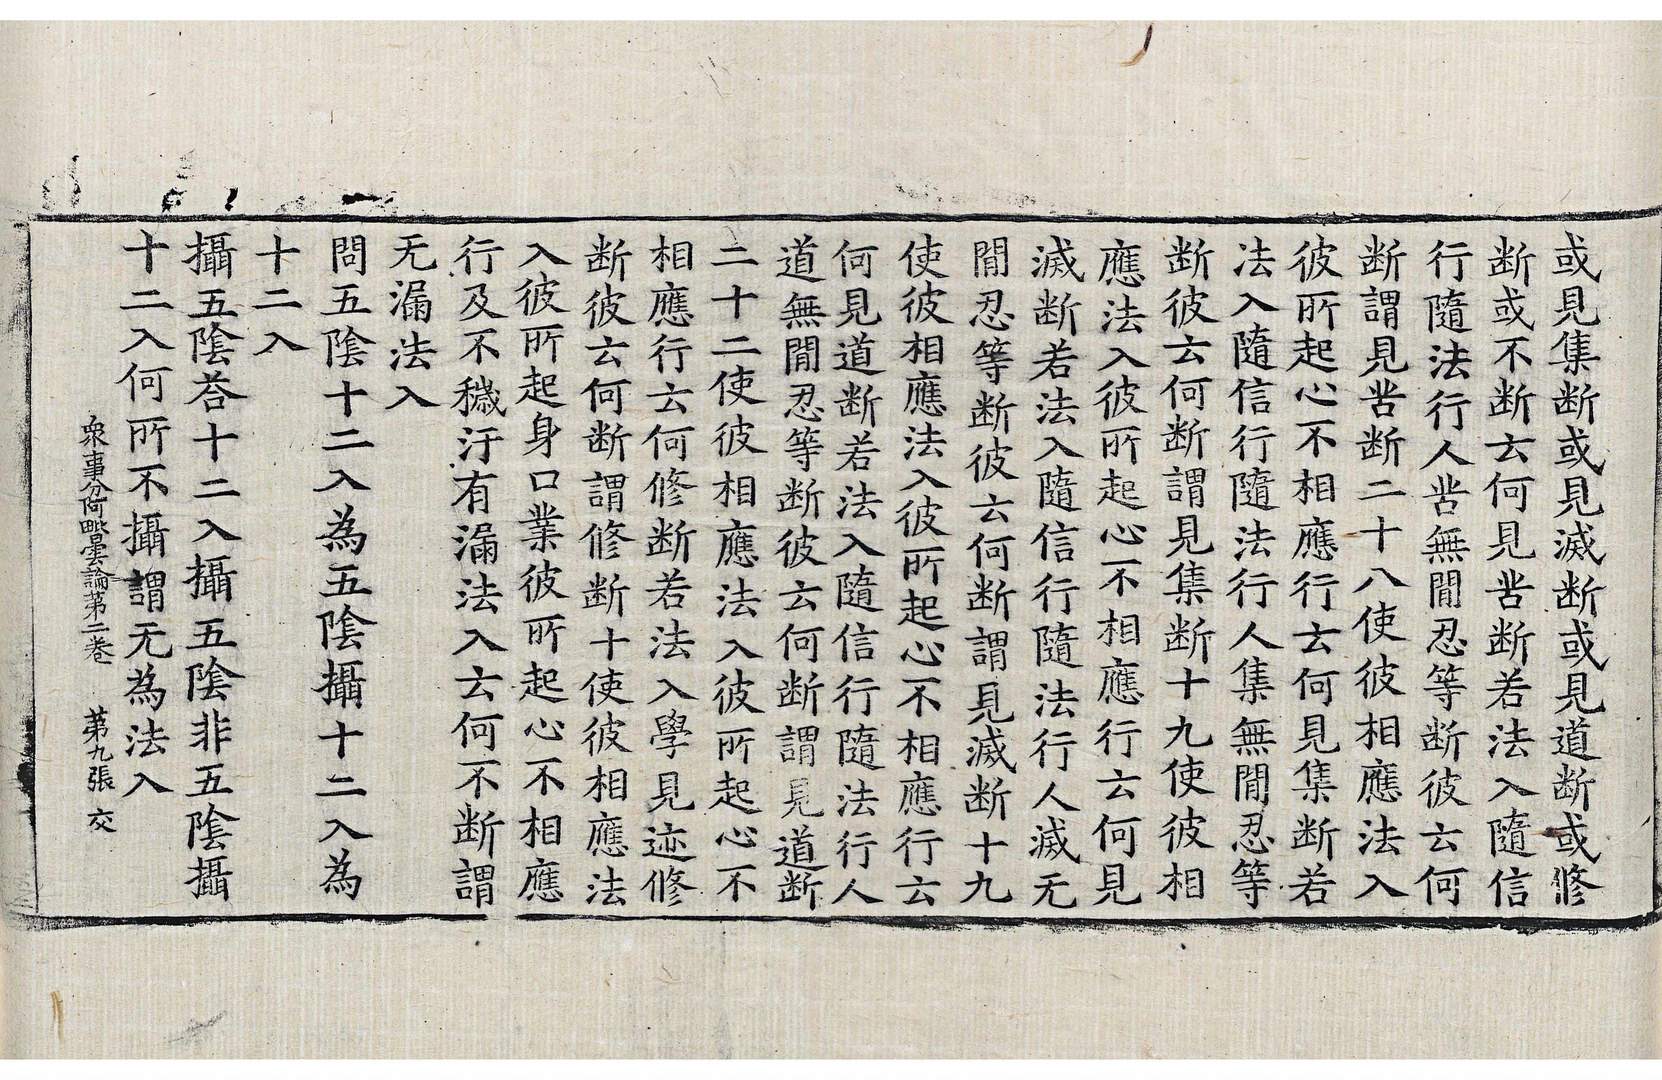 或見集断或見滅断或見道断或修
断或不断云何見苦断若法入隨信
行隨法行人苦無間忍等断彼云何
断謂見苦断二十八使彼相應法入
彼所起心不相應行云何見集断若
法入隨信行隨法行人集無間忍等
断彼云何断謂見集断十九使彼相
應法入彼所起心不相應行云何見
滅断若法入隨信行隨法行人滅无
間忍等断彼云何断謂見滅断十九
使彼相應法入彼所起心不相應行云
何見道断若法入隨信行隨法行人
道無間忍等断彼云何断謂見道断
二十二使彼相應法入彼所起心不
相應行云何修断若法入學見迹修
断彼云何断謂修断十使彼相應法
入彼所起身口業彼所起心不相應
行及不穢汙有漏法入云何不断謂
无漏法入
問五陰十二入為五陰攝十二入為
十二入
攝五陰荅十二入攝五陰非五陰攝
十二入何所不攝謂无為法入
衆事分阿毗曇論第二卷 第九張 交